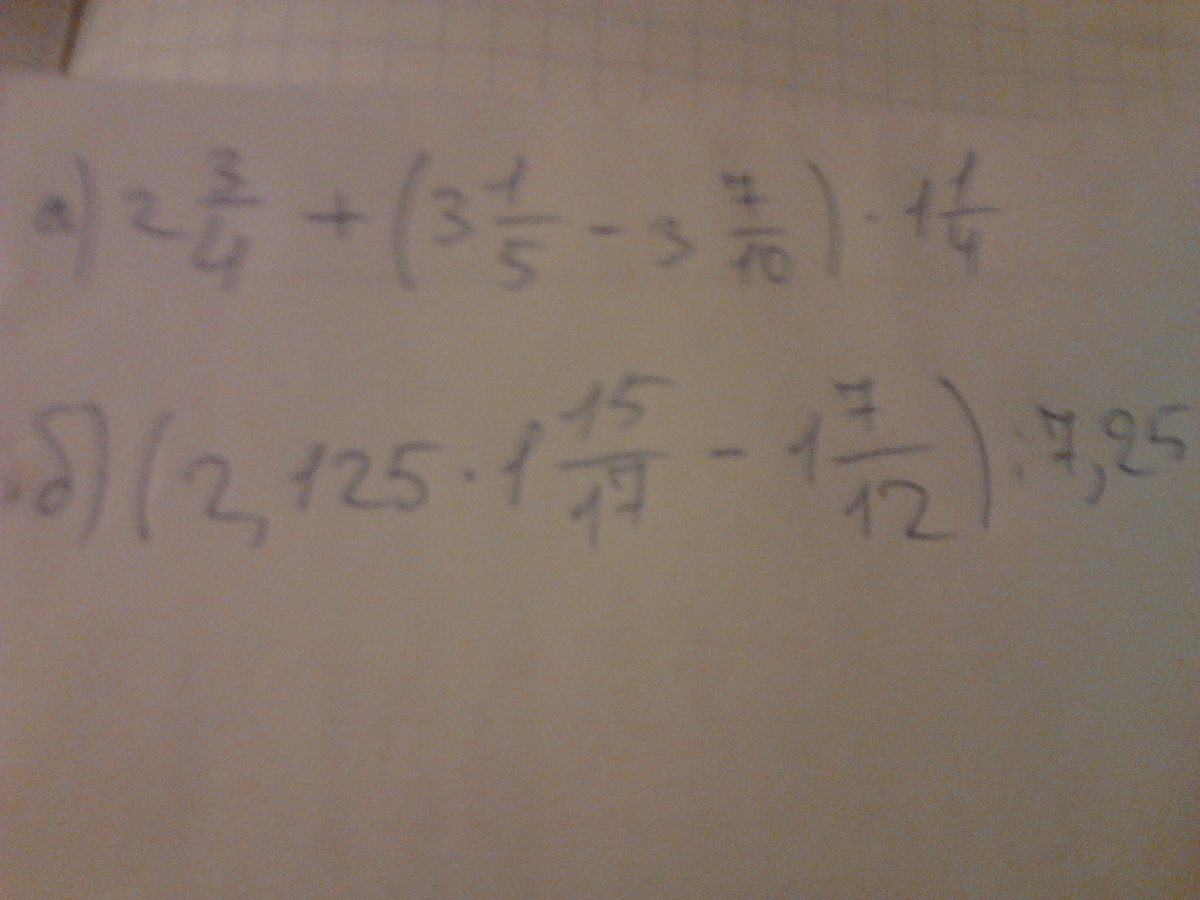 а) 2 3/4 + (3 1/5 - 3 7/10) · 1 1/4
б) (2,125 · 1 15/17 - 1 7/12) : 7,25